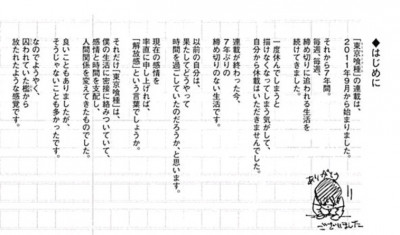 ◆はじめに
『東京喰種』の連載は、
2011年9月から始まりました。
それから7年間。
毎週、毎週、
締め切りに追われる生活を
続けてきました。
一度休んでしまうと
描けなくなってしまう気がして、
自分から休載はいただきませんでした。
連載が終わった今、
7年ぶりの
締め切りのない生活です。
以前の自分は、
果たしてどうやって
時間を過ごしていたのだろうか、と思います。
現在の感情を
率直に申し上げれば、
「解放感」という言葉でしょうか。
それだけ『東京喰種』が
僕の生活に密接に絡みついていて、
感情と時間を支配し、
人間関係を変えてきたものでした。
良いこともありましたが、
そうじゃないことも多かったです。
なのでようやく、
囚われていた檻から
放たれたような感覚です。
ありがとう
ございました